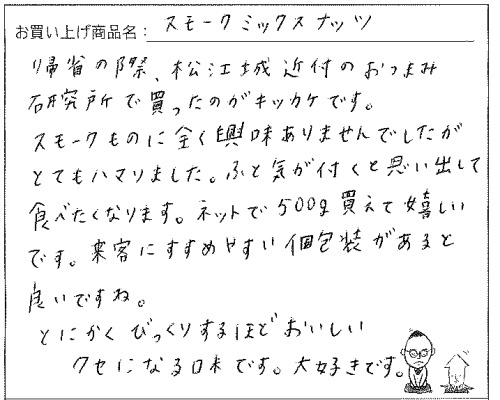 お買い上げ商品名：スモークミックスナッツ
帰省の際、松江城近付のおつまみ
研究所で買ったのがキッカケです。
スモークものに全く興味ありませんでしたが
とてもハマりました。ふと気が付くと思い出して
食べたくなります。ネットで500g買えて嬉しい
です。来客にすすめやすい個包装があると
良いですね。
とにかくびっくりするほどおいしい
クセになる味です。大好きです。